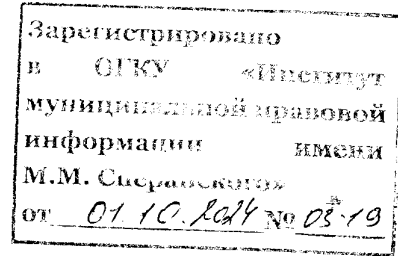 Зарегистрировано
в ОГКУ «Институт
муниципальной правовой
информации имени
М.М. Сперанского»
от 01.10.2024 № 03-19